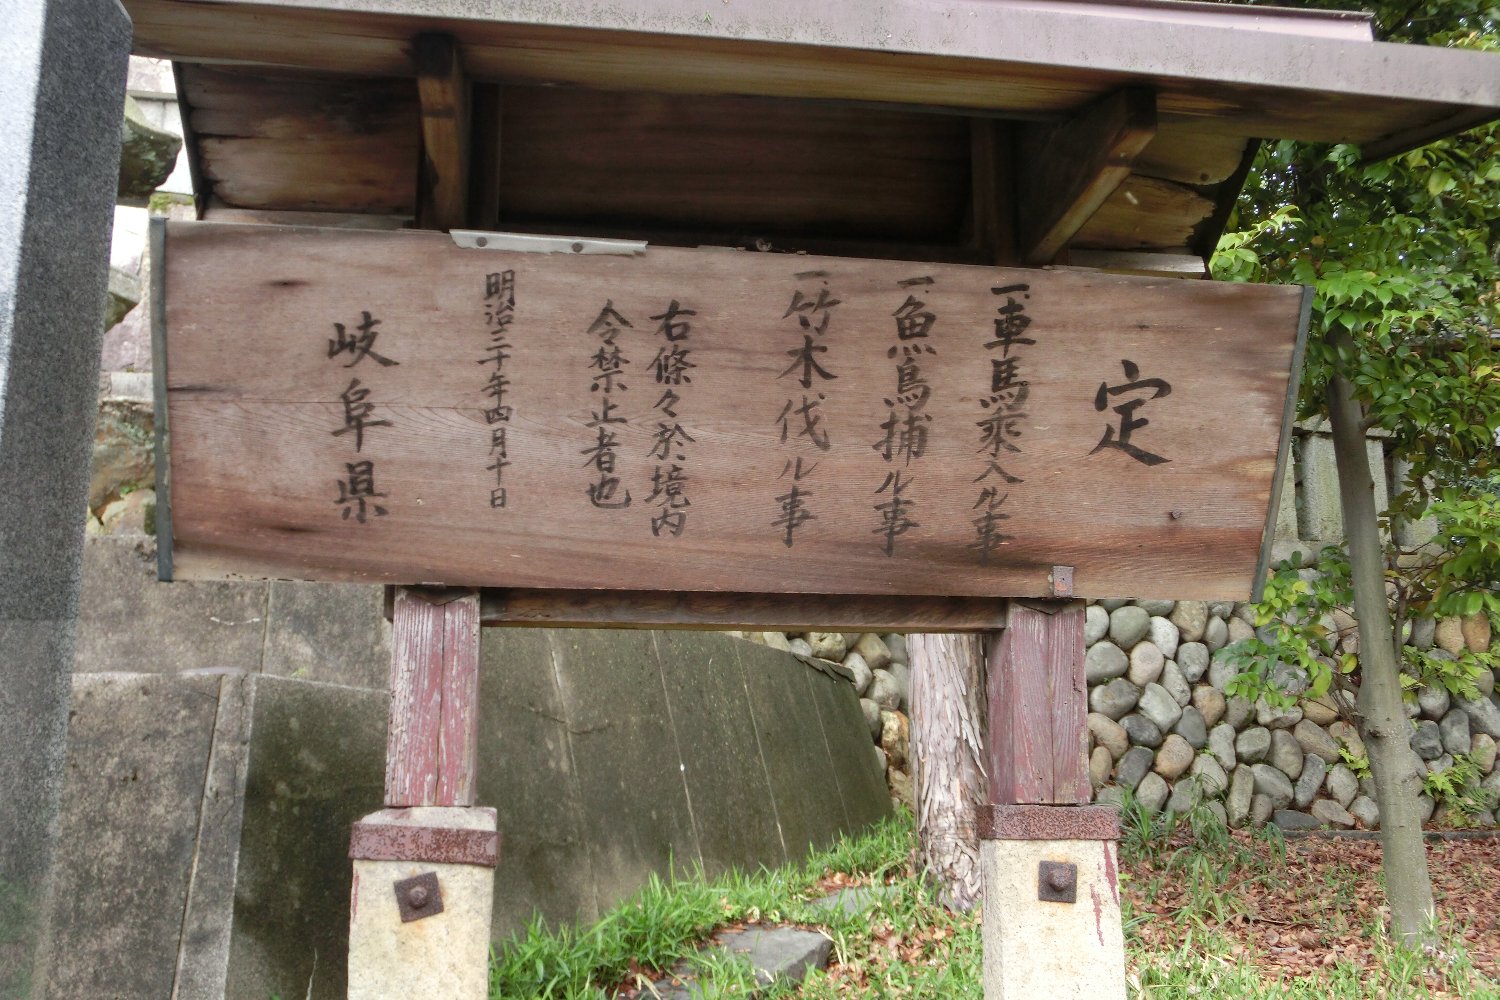 定
一、車馬乘入ル事
一、魚鳥捕ル事
一、竹木伐ル事
右條々於境内
令禁止者也
明治三十年四月十日
岐阜県